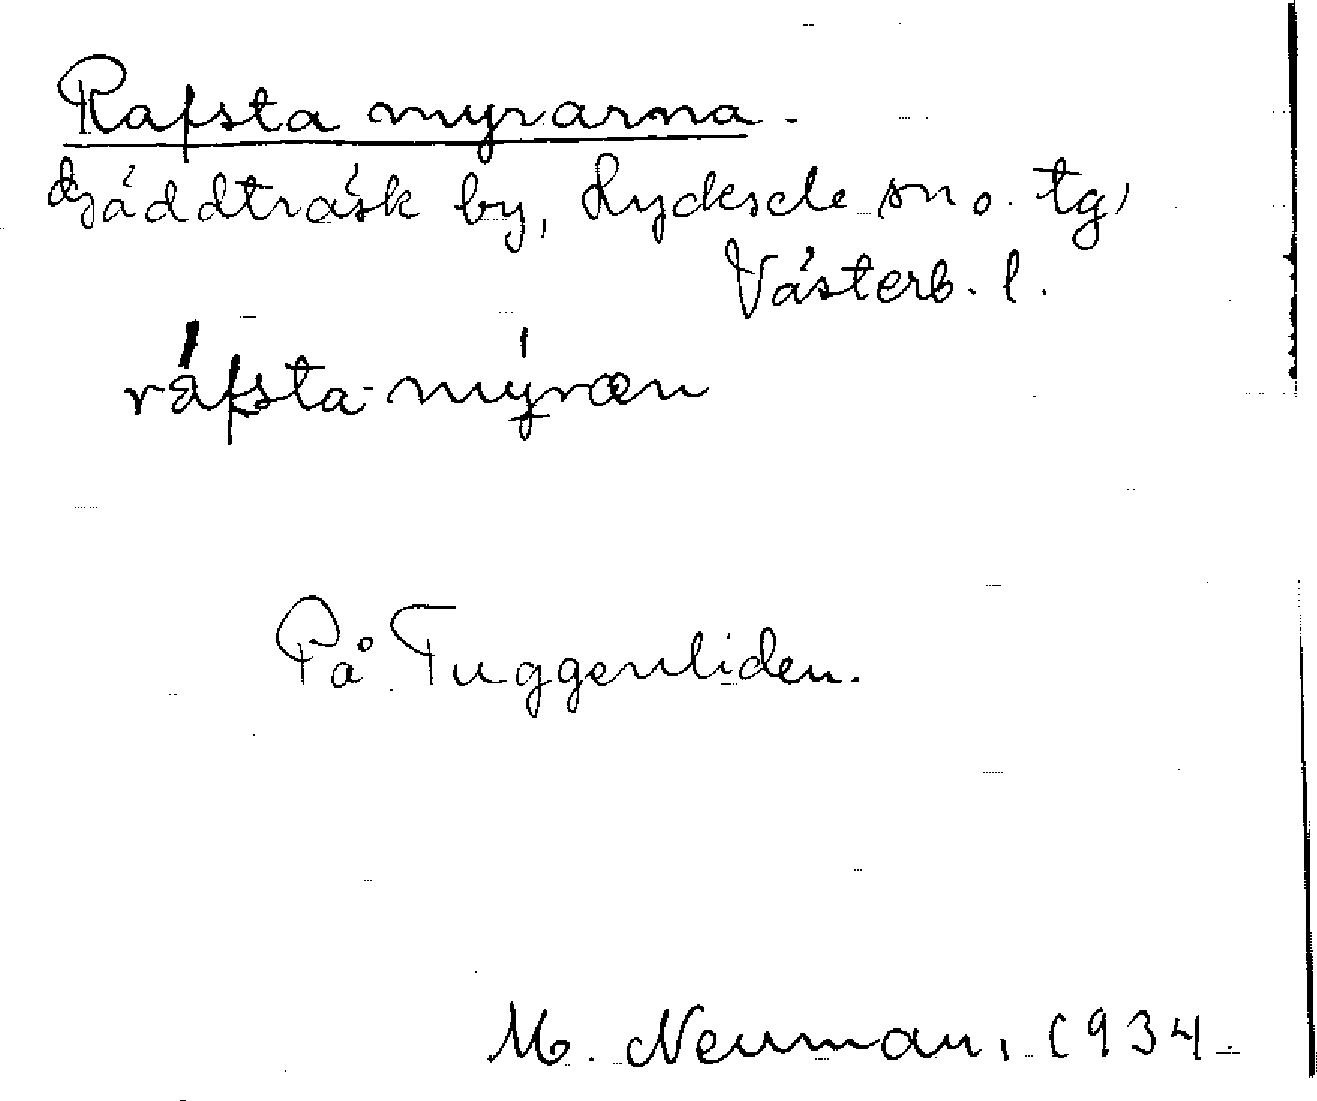 Rafsta myrarna.
Gäddträsk by, Lycksele sn o. tg,
Västerb. l.
ráfsta-mýræn
På Tuggenliden.
M. Neuman, 1934.